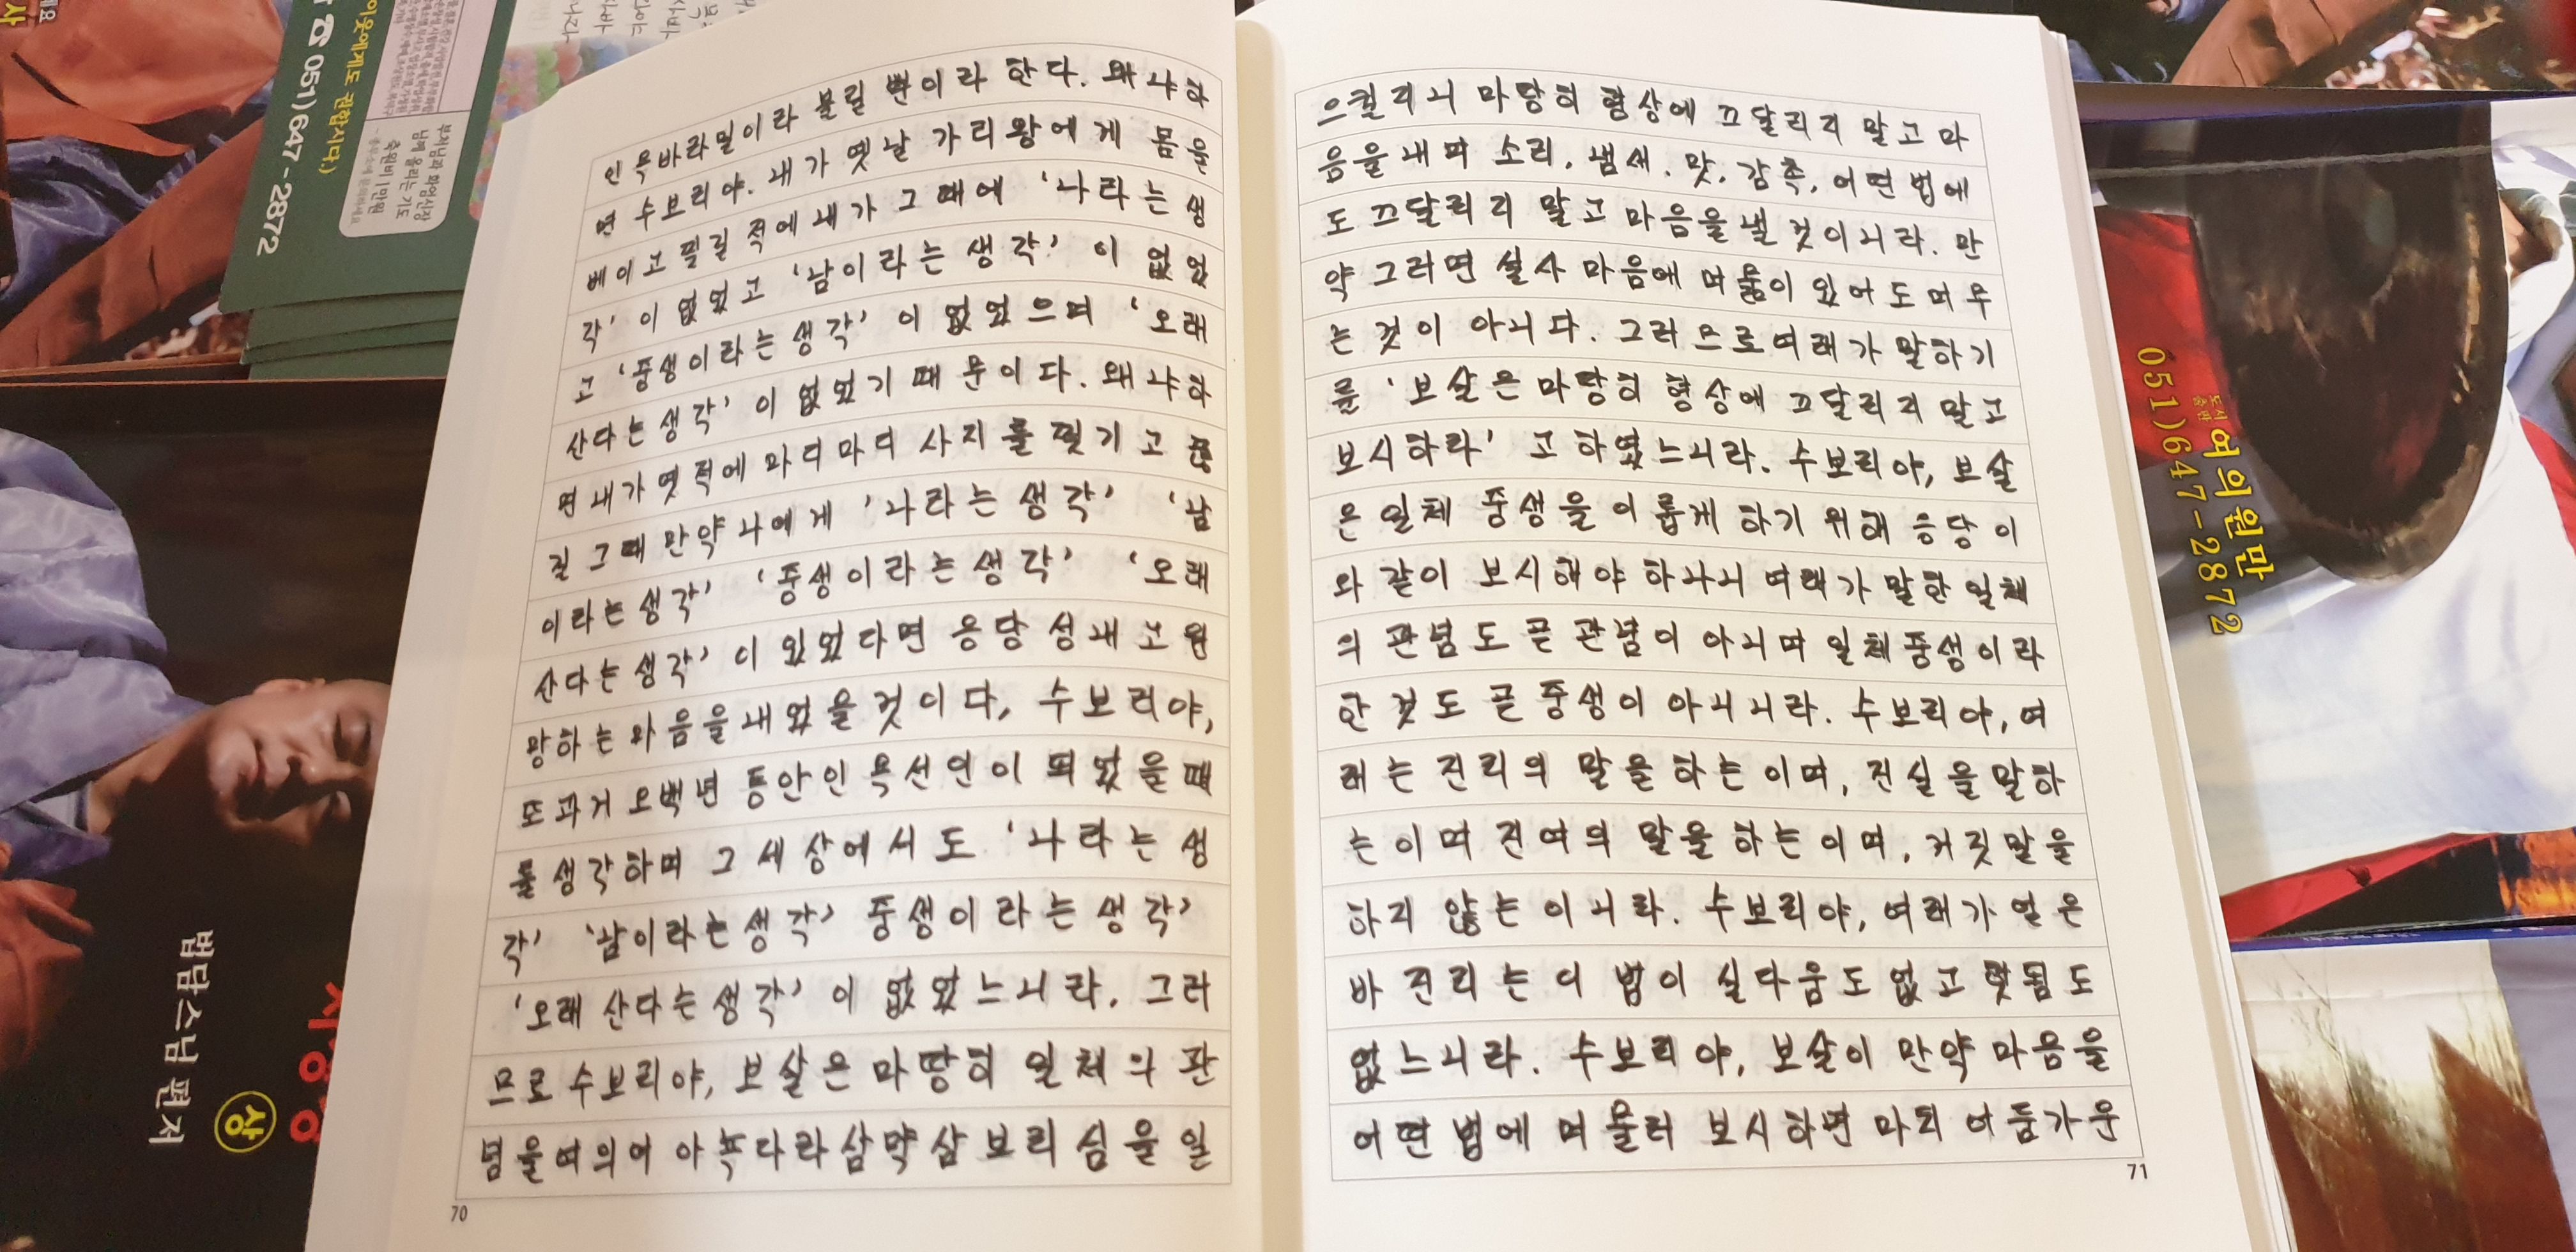 인욕바라밀이라 불릴 뿐이라 한다. 왜냐하
면 수보리야. 내가 옛날 가리왕에게 몸을
베이고 찔릴 적에 내가 그 때에 '나라는 생
각' 이 없었고 '남이라는 생각' 이 없었
고 '중생이라는 생각' 이 없었으며 '오래
산다는 생각' 이 없었기 때문이다. 왜냐하
면 내가 옛적에 마디마디 사지를 찢기고 끊
길 그때 만약 나에게 '나라는 생각' '남
이라는 생각' '중생이라는 생각' '오래
산다는 생각' 이 있었다면 응당 성내고 원
망하는 마음을 내었을 것이다, 수보리야,
또 과거 오백년 동안 인욕선인이 되었을 때
를 생각하며 그 세상에서도 '나라는 생
각' '남이라는 생각' 중생이라는 생각'
'오래 산다는 생각' 이 없었느니라. 그러
므로 수보리야, 보살은 마땅히 일체의 관
념을 여의어 아뇩다라삼먁삼보리심을 일
70
으킬지니 마땅히 형상에 끄달리지 말고 마
음을 내며 소리. 냄새. 맛. 감촉. 어떤 법에
도 끄달리지 말고 마음을 낼 것이니라. 만
약 그러면 설사 마음에 머뭄이 있어도 머무
는 것이 아니다. 그러므로 여래가 말하기
를 '보살은 마땅히 형상에 끄달리지 말고
보시하라' 고 하였느니라. 수보리야, 보살
은 일체 중생을 이롭게 하기 위해 응당 이
와 같이 보시해야 하나니 여래가 말한 일체
의 관념도 곧 관념이 아니며 일체중생이라
한 것도 곧 중생이 아니니라. 수보리야, 여
래는 진리의 말을 하는 이며, 진실을 말하
는 이며 진여의 말을 하는 이며, 거짓말을
하지 않는 이니라. 수보리야, 여래가 얻은
바 진리는 이 법이 실다움도 없고 헛됨도
없느니라. 수보리야, 보살이 만약 마음을
어떤 법에 머물러 보시하면 마치 어둠가운
71
☎ 051)647-2872
이웃에게도 권합시다.)
부처님과 화엄신장
님께 올리는 기도
축원비 1만원
법담스님 편저
상
도서출판 여의원만
051)647-2872